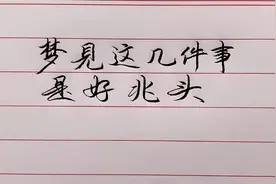 梦見这几件事
是好兆头